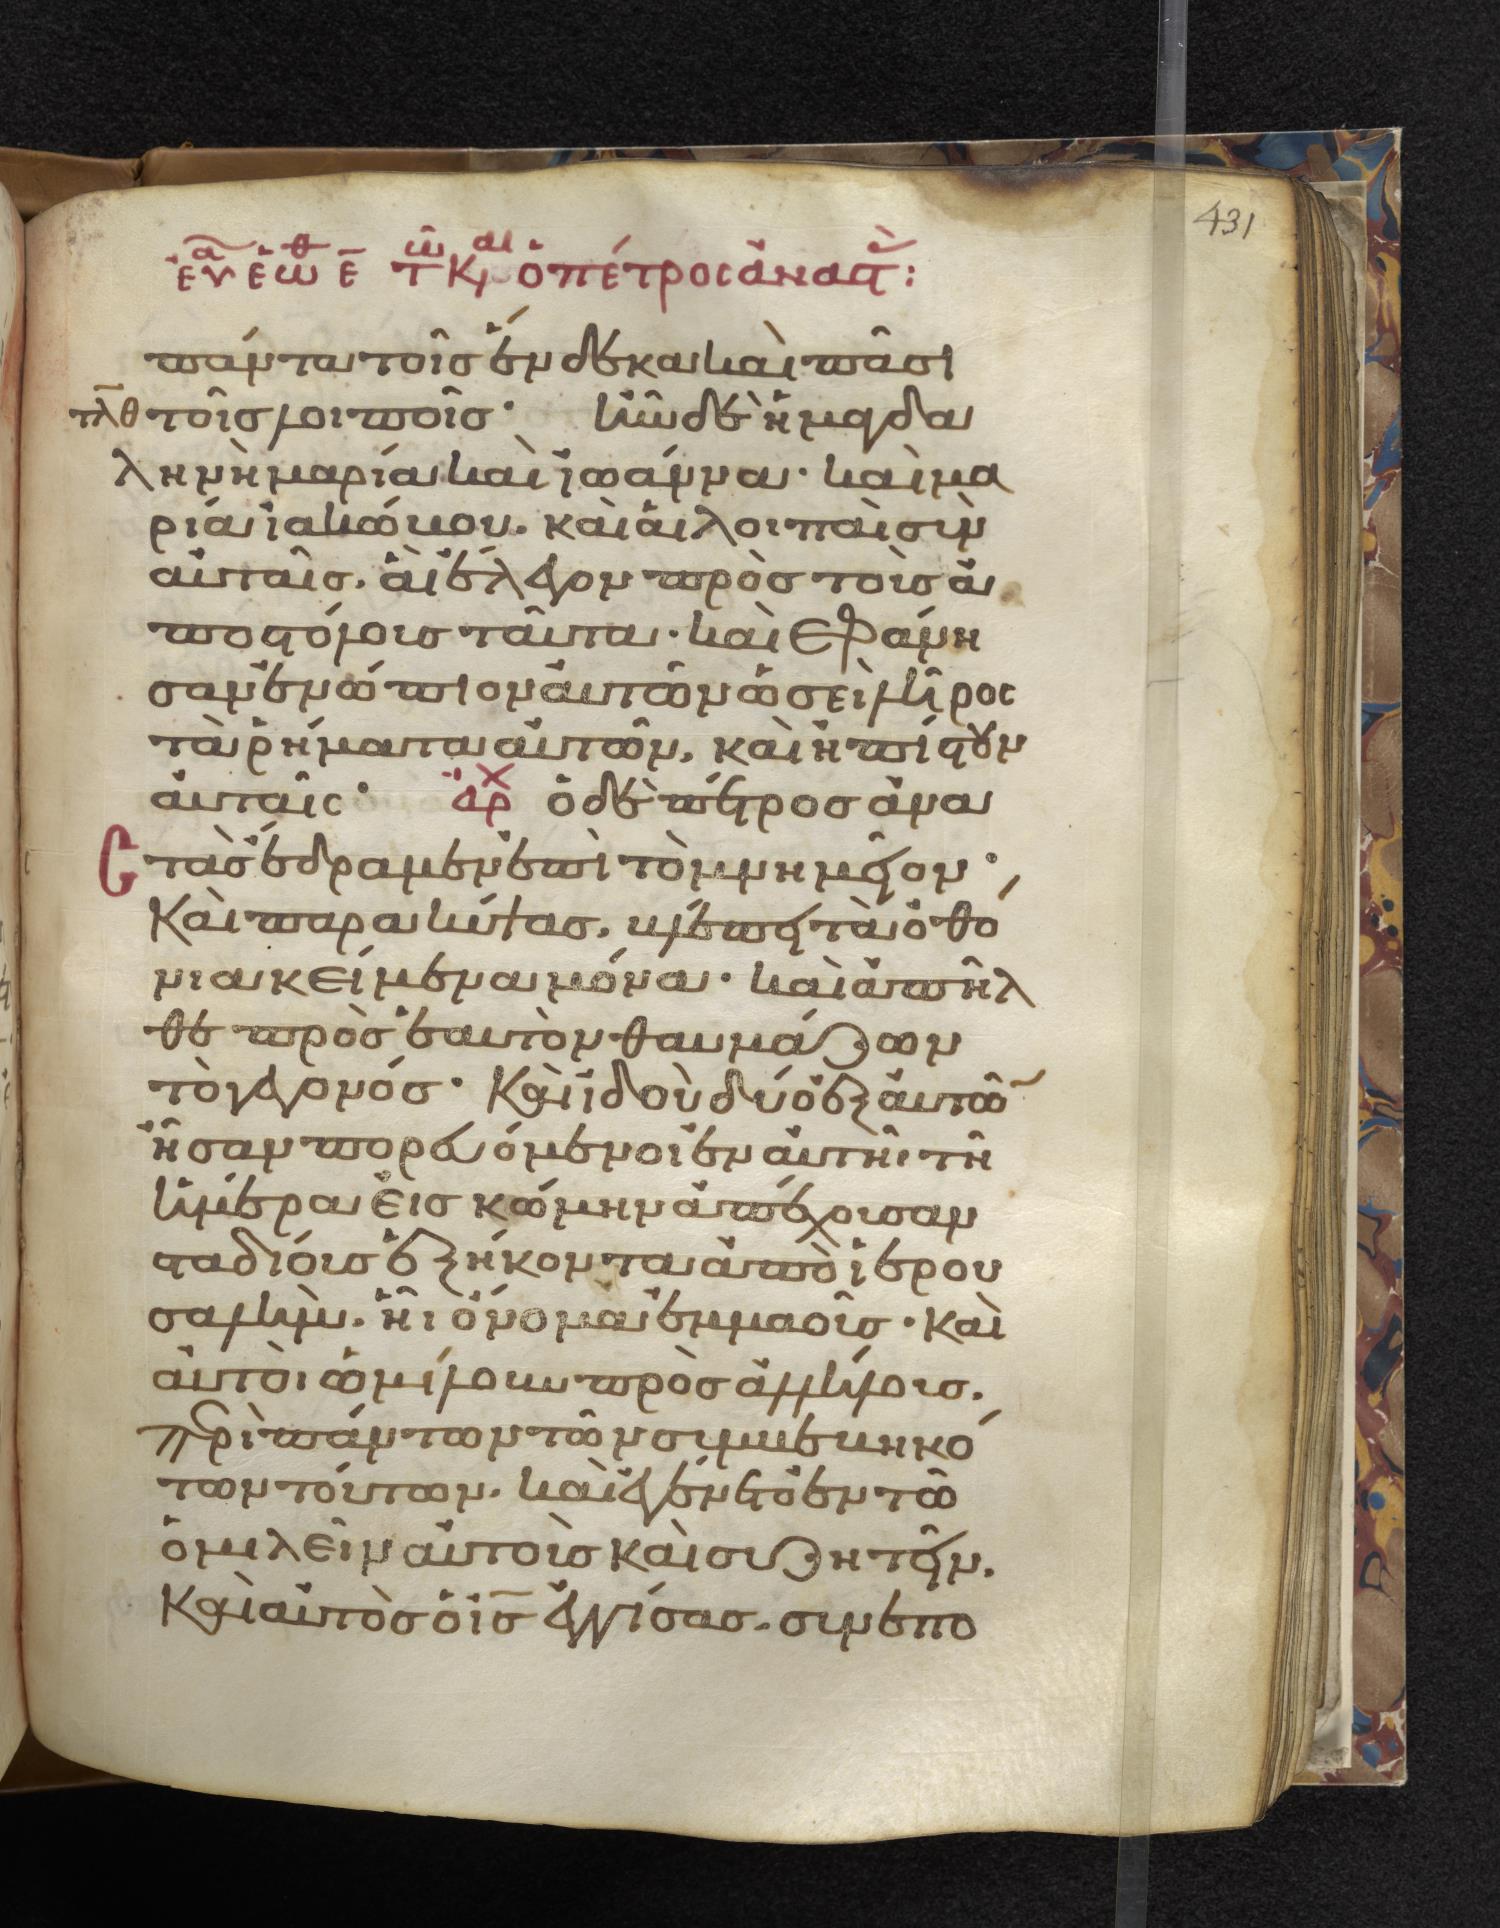 431
εὐα ἑωθ ε τῶ κ, αι ὁ πέτρος ἀναστὰ:
πάντα τοῖς ἕνδεκα καὶ πᾶσι
τλθ τοῖς λοιποῖς· ἦν δὲ ἡ μαγδα
ληνὴ μαρία καὶ ἰωάννα· καὶ μα
ρία ἰακώβου. καὶ αἱ λοιπαὶ σὺν
αὐταῖς. αἳ ἔλεγον πρὸς τοὺς ἀ
ποστόλους ταῦτα· καὶ ἐφάνη
σαν ἐνώπιον αὐτῶν ὡσεὶ λῆρος
τὰ ῥήματα αὐτῶν, καὶ ἠπίστουν
αὐταῖς· ἀρχ ὁ δὲ πέτρος ἀνα
στὰς ἔδραμεν ἐπὶ τὸ μνημεῖον·
Καὶ παρακύψας. βλέπει τὰ ὀθό
νια κείμενα μόνα· καὶ ἀπῆλ
θε πρὸς ἑαυτὸν θαυμάζων
τὸ γεγονός· Καὶ ἰδοὺ δύο ἐξ αὐτῶ
ἦσαν πορευόμενοι ἐν αὐτῆι τῆ
ἡμέρα εἰς κώμην ἀπέχουσαν
σταδίους ἑξήκοντα ἀπὸ ἱερου
σαλήμ. ἧι ὄνομα ἐμμαούς· καὶ
αὐτοὶ ὡμίλουν πρὸς ἀλλήλους.
περὶ πάντων τῶν συμβεβηκό
των τούτων. καὶ ἐγένετο ἐν τῶ
ὁμιλεῖν αὐτοὺς καὶ συζητεῖν.
Καὶ αὐτὸς ὁ ις ἐγγίσας. συνεπο